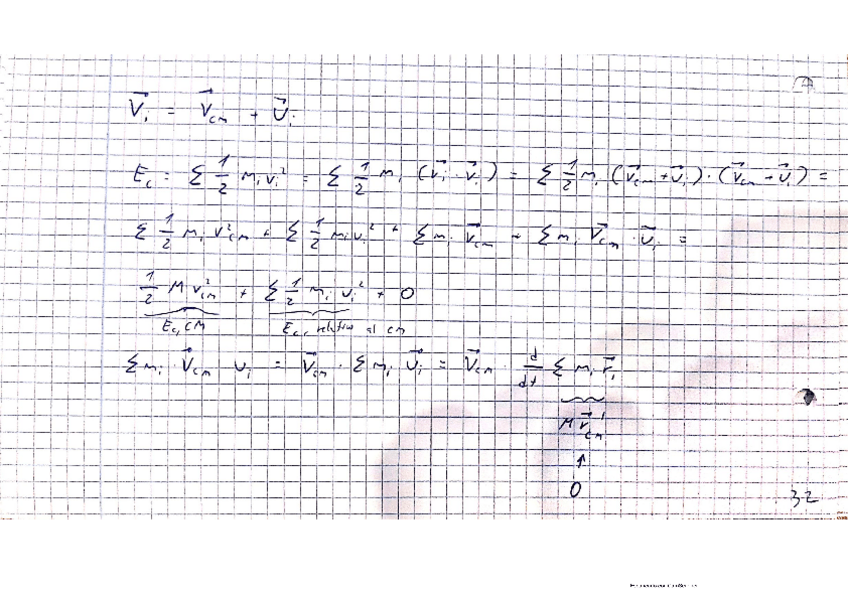 V⃗ᵢ = V⃗cm + U⃗ᵢ
Ec = Σ 1/2 mᵢvᵢ² = Σ 1/2 mᵢ (v⃗ᵢ · v⃗ᵢ) = Σ 1/2 mᵢ (v⃗cm + u⃗ᵢ) · (v⃗cm + u⃗ᵢ) =
Σ 1/2 mᵢ v²cm + Σ 1/2 mᵢ uᵢ² + Σ mᵢ v⃗cm + Σ mᵢ V⃗cm · u⃗ᵢ =
1/2 M v²cm + Σ 1/2 mᵢ uᵢ² + 0
Ec, CM Ec, relativa al cm
Σ mᵢ · V⃗cm uᵢ = V⃗cm · Σ mᵢ u⃗ᵢ = V⃗cm · d/dt Σ mᵢ r⃗ᵢ
M r⃗cm'
↑
0
32